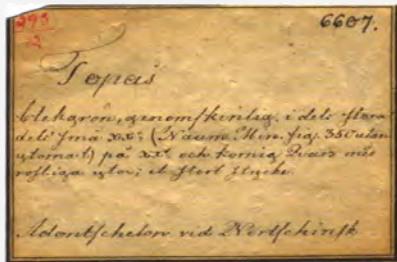 293
2
6607.
Topas
blekgrön, genomskinlig, i dels stora
dels små xx: (Naum. Min. fig. 350 utan
ytorna t) på xx: och kornig Qvars med
rostiga ytor; et stort stycke.
Adontschelon vid Nertschinsk